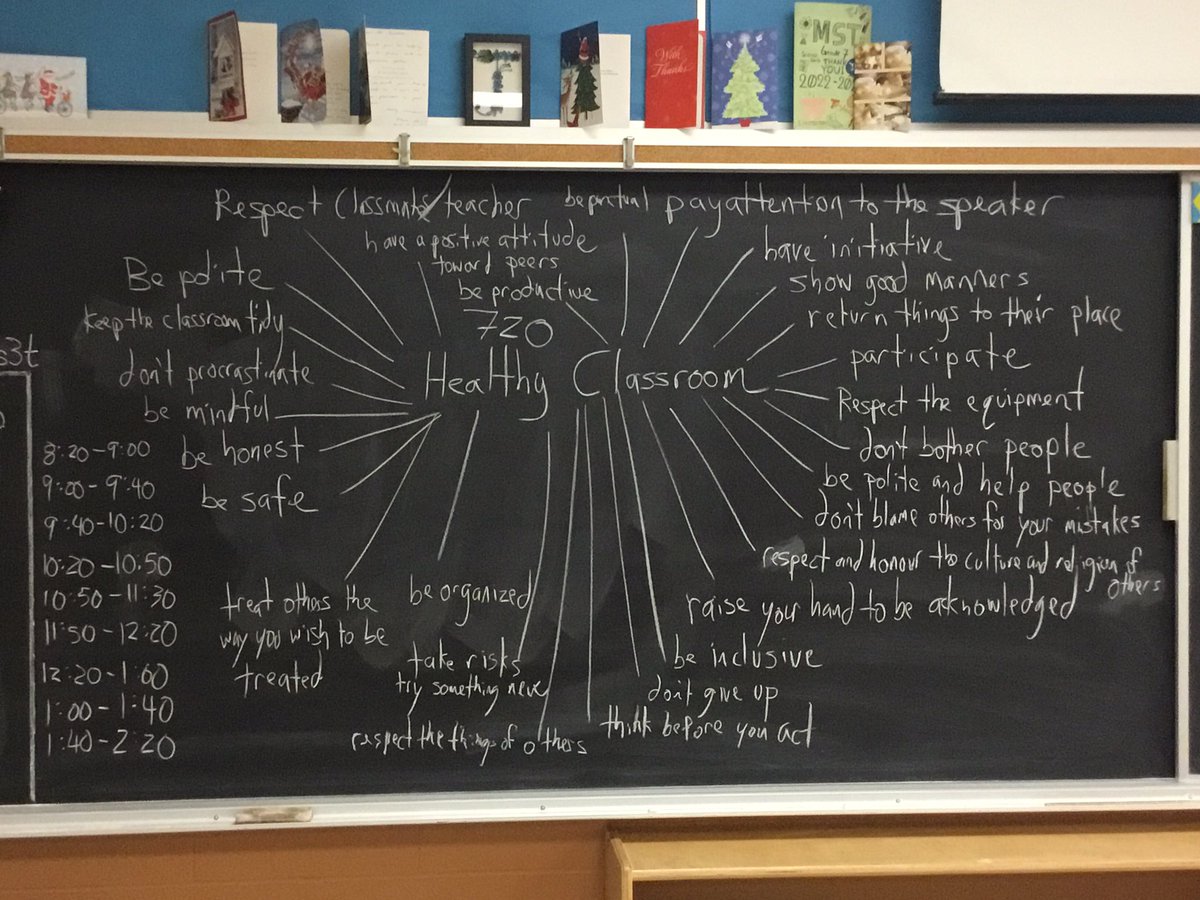 With
Thanks
MST
Grade 7
THANK
YOU!
2022-20
Respect Classmates/teacher
be puntual
pay attention to the speaker
have a positive attitude
toward peers
be productive
have initiative
show good manners
return things to their place
participate
Respect the equipment
don't bother people
be polite and help people
don't blame others for your mistakes
respect and honour the culture and religion of
others
raise your hand to be acknowledged
be inclusive
don't give up
think before you act
720
Healthy Classroom
Be polite
keep the classroom tidy
don't procrastinate
be mindful
be honest
be safe
treat others the
way you wish to be
treated
be organized
take risks
try something new
respect the things of others
s3t
8:20-9:00
9:00-9:40
9:40-10:20
10:20-10:50
10:50-11:30
11:50-12:20
12:20-1:00
1:00-1:40
1:40-2:20